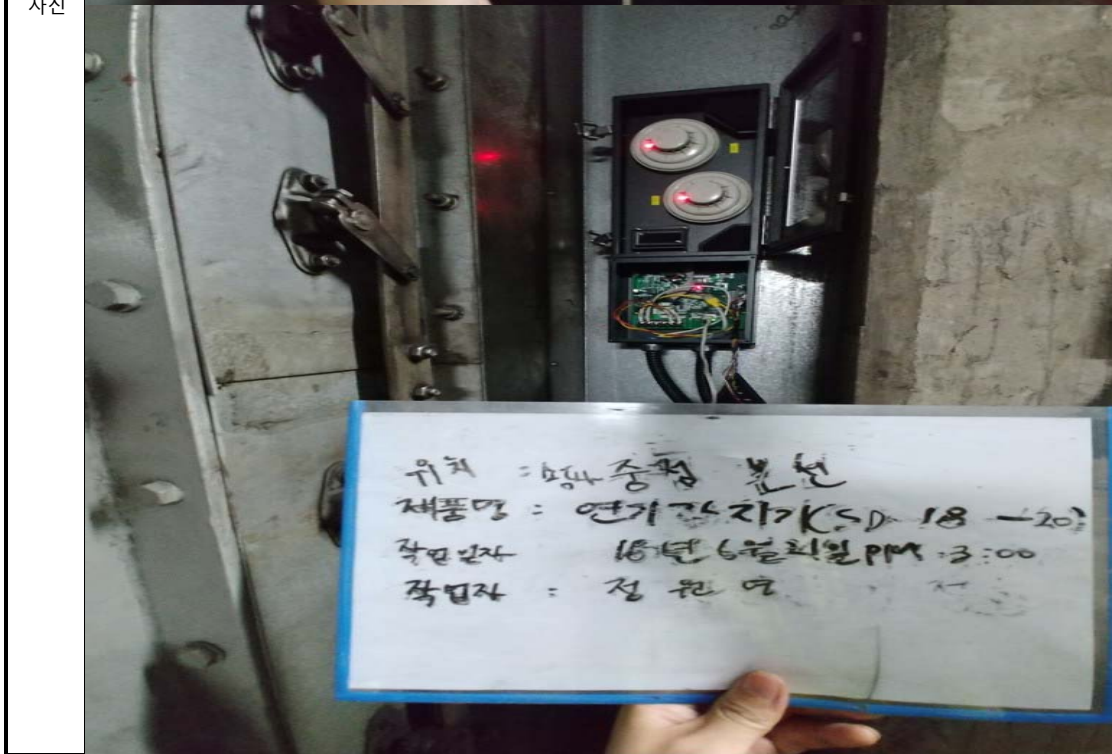 사진
위치 : 송파 중첩 분선
제품명 : 연기감지기(SD-18-20)
작업일자 18년 6월 21일 PM :3:00
작업자 : 정 원 연